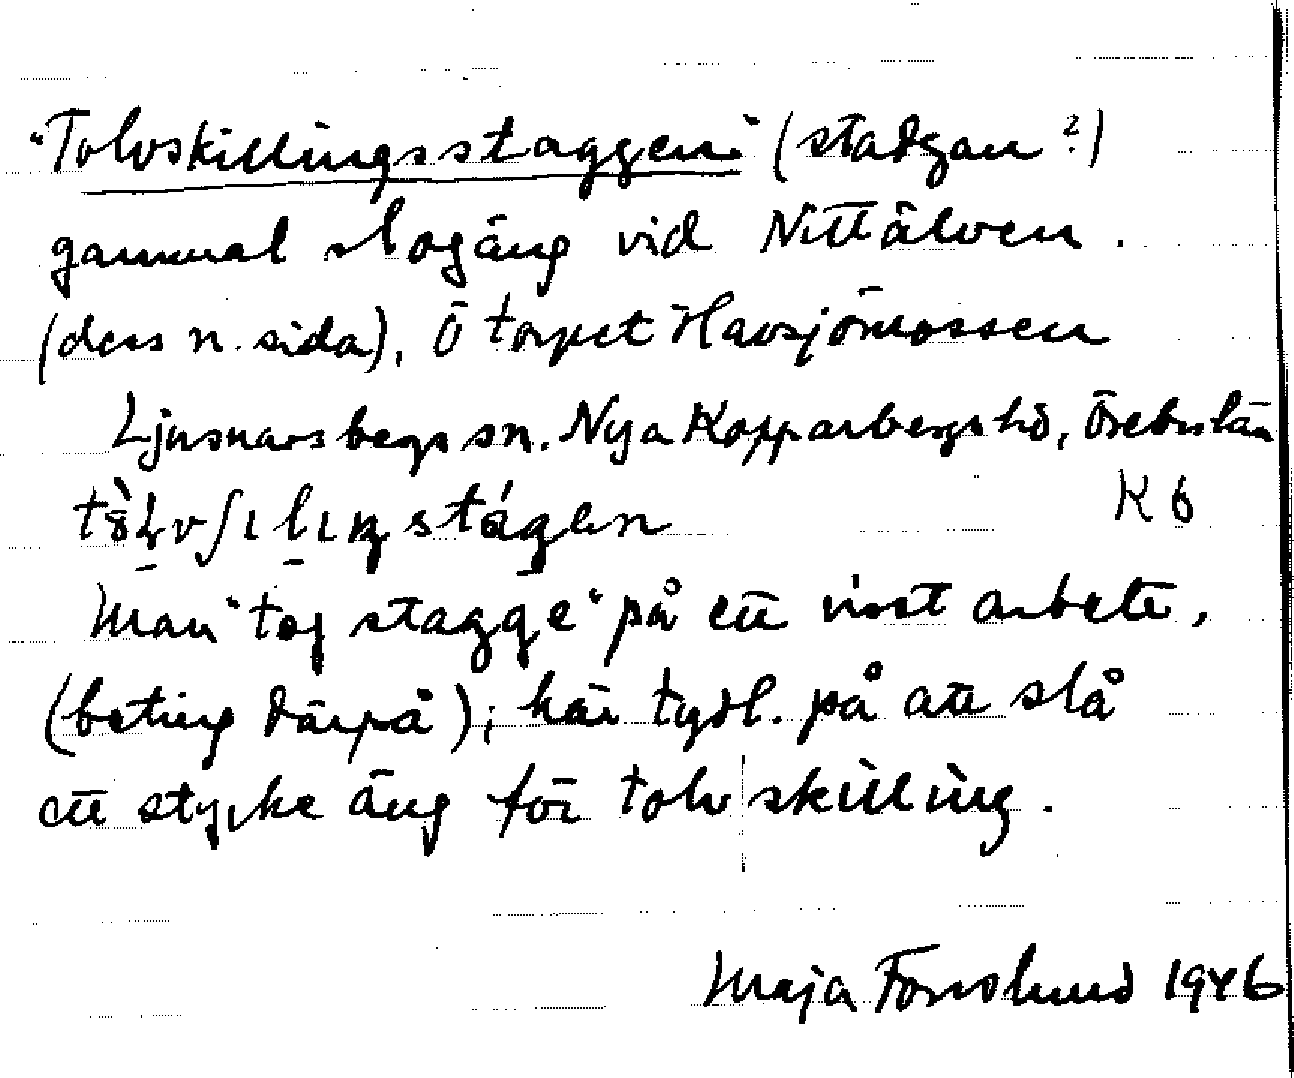 "Tolvskillingsstaggen" (stadgan?)
gammal slogäng vid Nittälven.
(dess n. sida), Ö torpet Havsjömossen
Ljusnarsbergs sn. Nya Kopparbergs hd, Örebro län
K 6
Man "tog stagge" på ett visst arbete,
(beting därpå); här tydl. på att slå
ett stycke äng för tolv skilling.
Maja Forsslund 1946